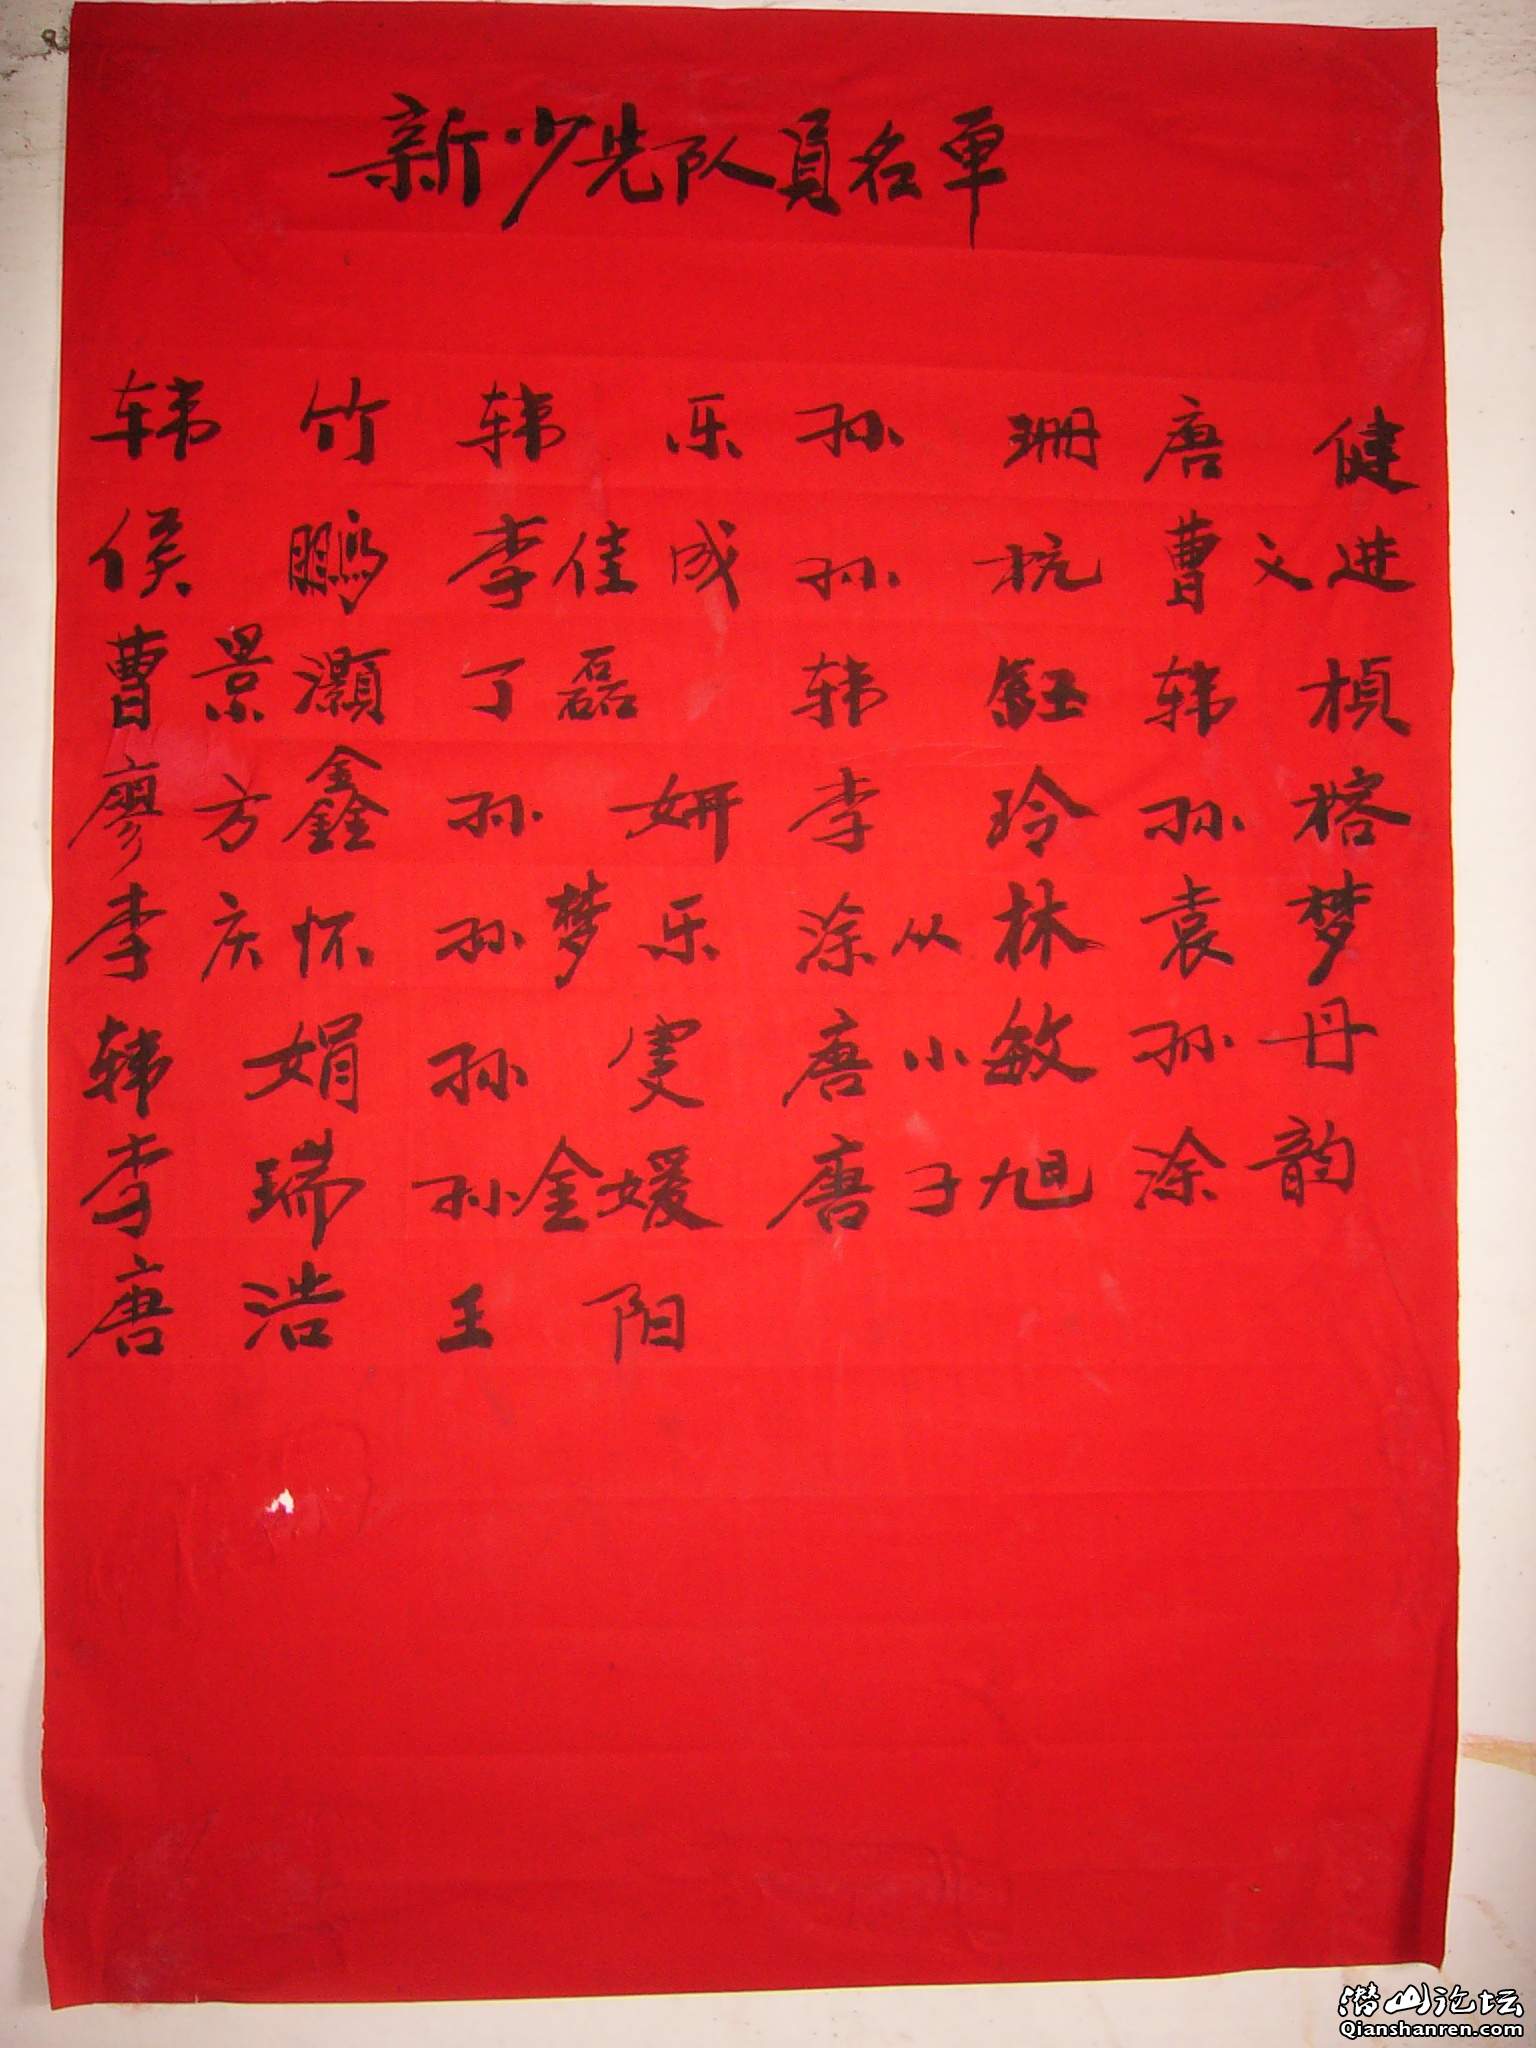 新少先队员名单
韩 竹 韩 乐 孙 珊 唐 健
侯 鹏 李佳成 孙 杭 曹义进
曹景灏 丁磊 韩 钰 韩 桢
廖方鑫 孙 妍 李 玲 孙 榕
李庆怀 孙梦乐 涂从林 袁 梦
韩 娟 孙 雯 唐小敏 孙 丹
李 瑞 孙金媛 唐子旭 涂 韵
唐 浩 王 阳
潜山论坛
Qianshanren.com